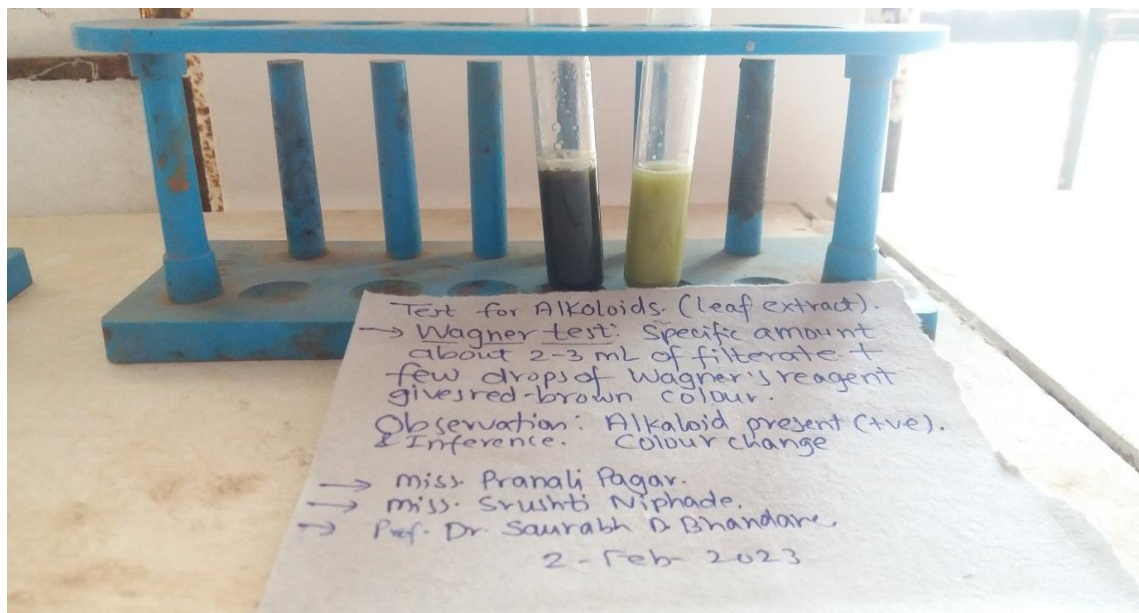 Test for Alkoloids. (leaf extract).
→ Wagner test: Specific amount
about 2-3 mL of filterate +
few drops of Wagner's reagent
gives red-brown colour.
Observation: Alkaloid present (+ve).
& Inference. Colour change
→ miss. Pranali Pagar.
→ miss. Srushti Niphade.
→ Prof. Dr. Saurabh D. Bhandare.
2 - Feb - 2023